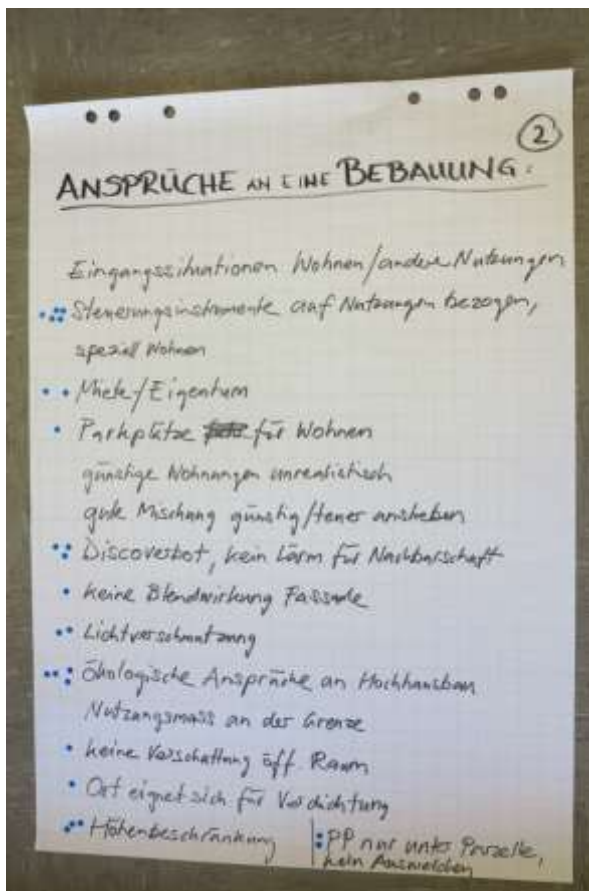 ②
ANSPRÜCHE AN EINE BEBAUUNG:
Eingangssituationen Wohnen/andere Nutzungen
Steuerungsinstrumente auf Nutzungen bezogen,
speziell Wohnen
Miete/Eigentum
Parkplätze für Wohnen
günstige Wohnungen unrealistisch
gute Mischung günstig/teuer anstreben
Discoverbot, kein Lärm für Nachbarschaft
keine Blendwirkung Fassade
Lichtverschmutzung
ökologische Ansprüche an Hochhausbau
Nutzungsmass an der Grenze
keine Verschattung öff. Raum
Ort eignet sich für Verdichtung
Höhenbeschränkung
PP nur unter Parzelle,
kein Ausweichen